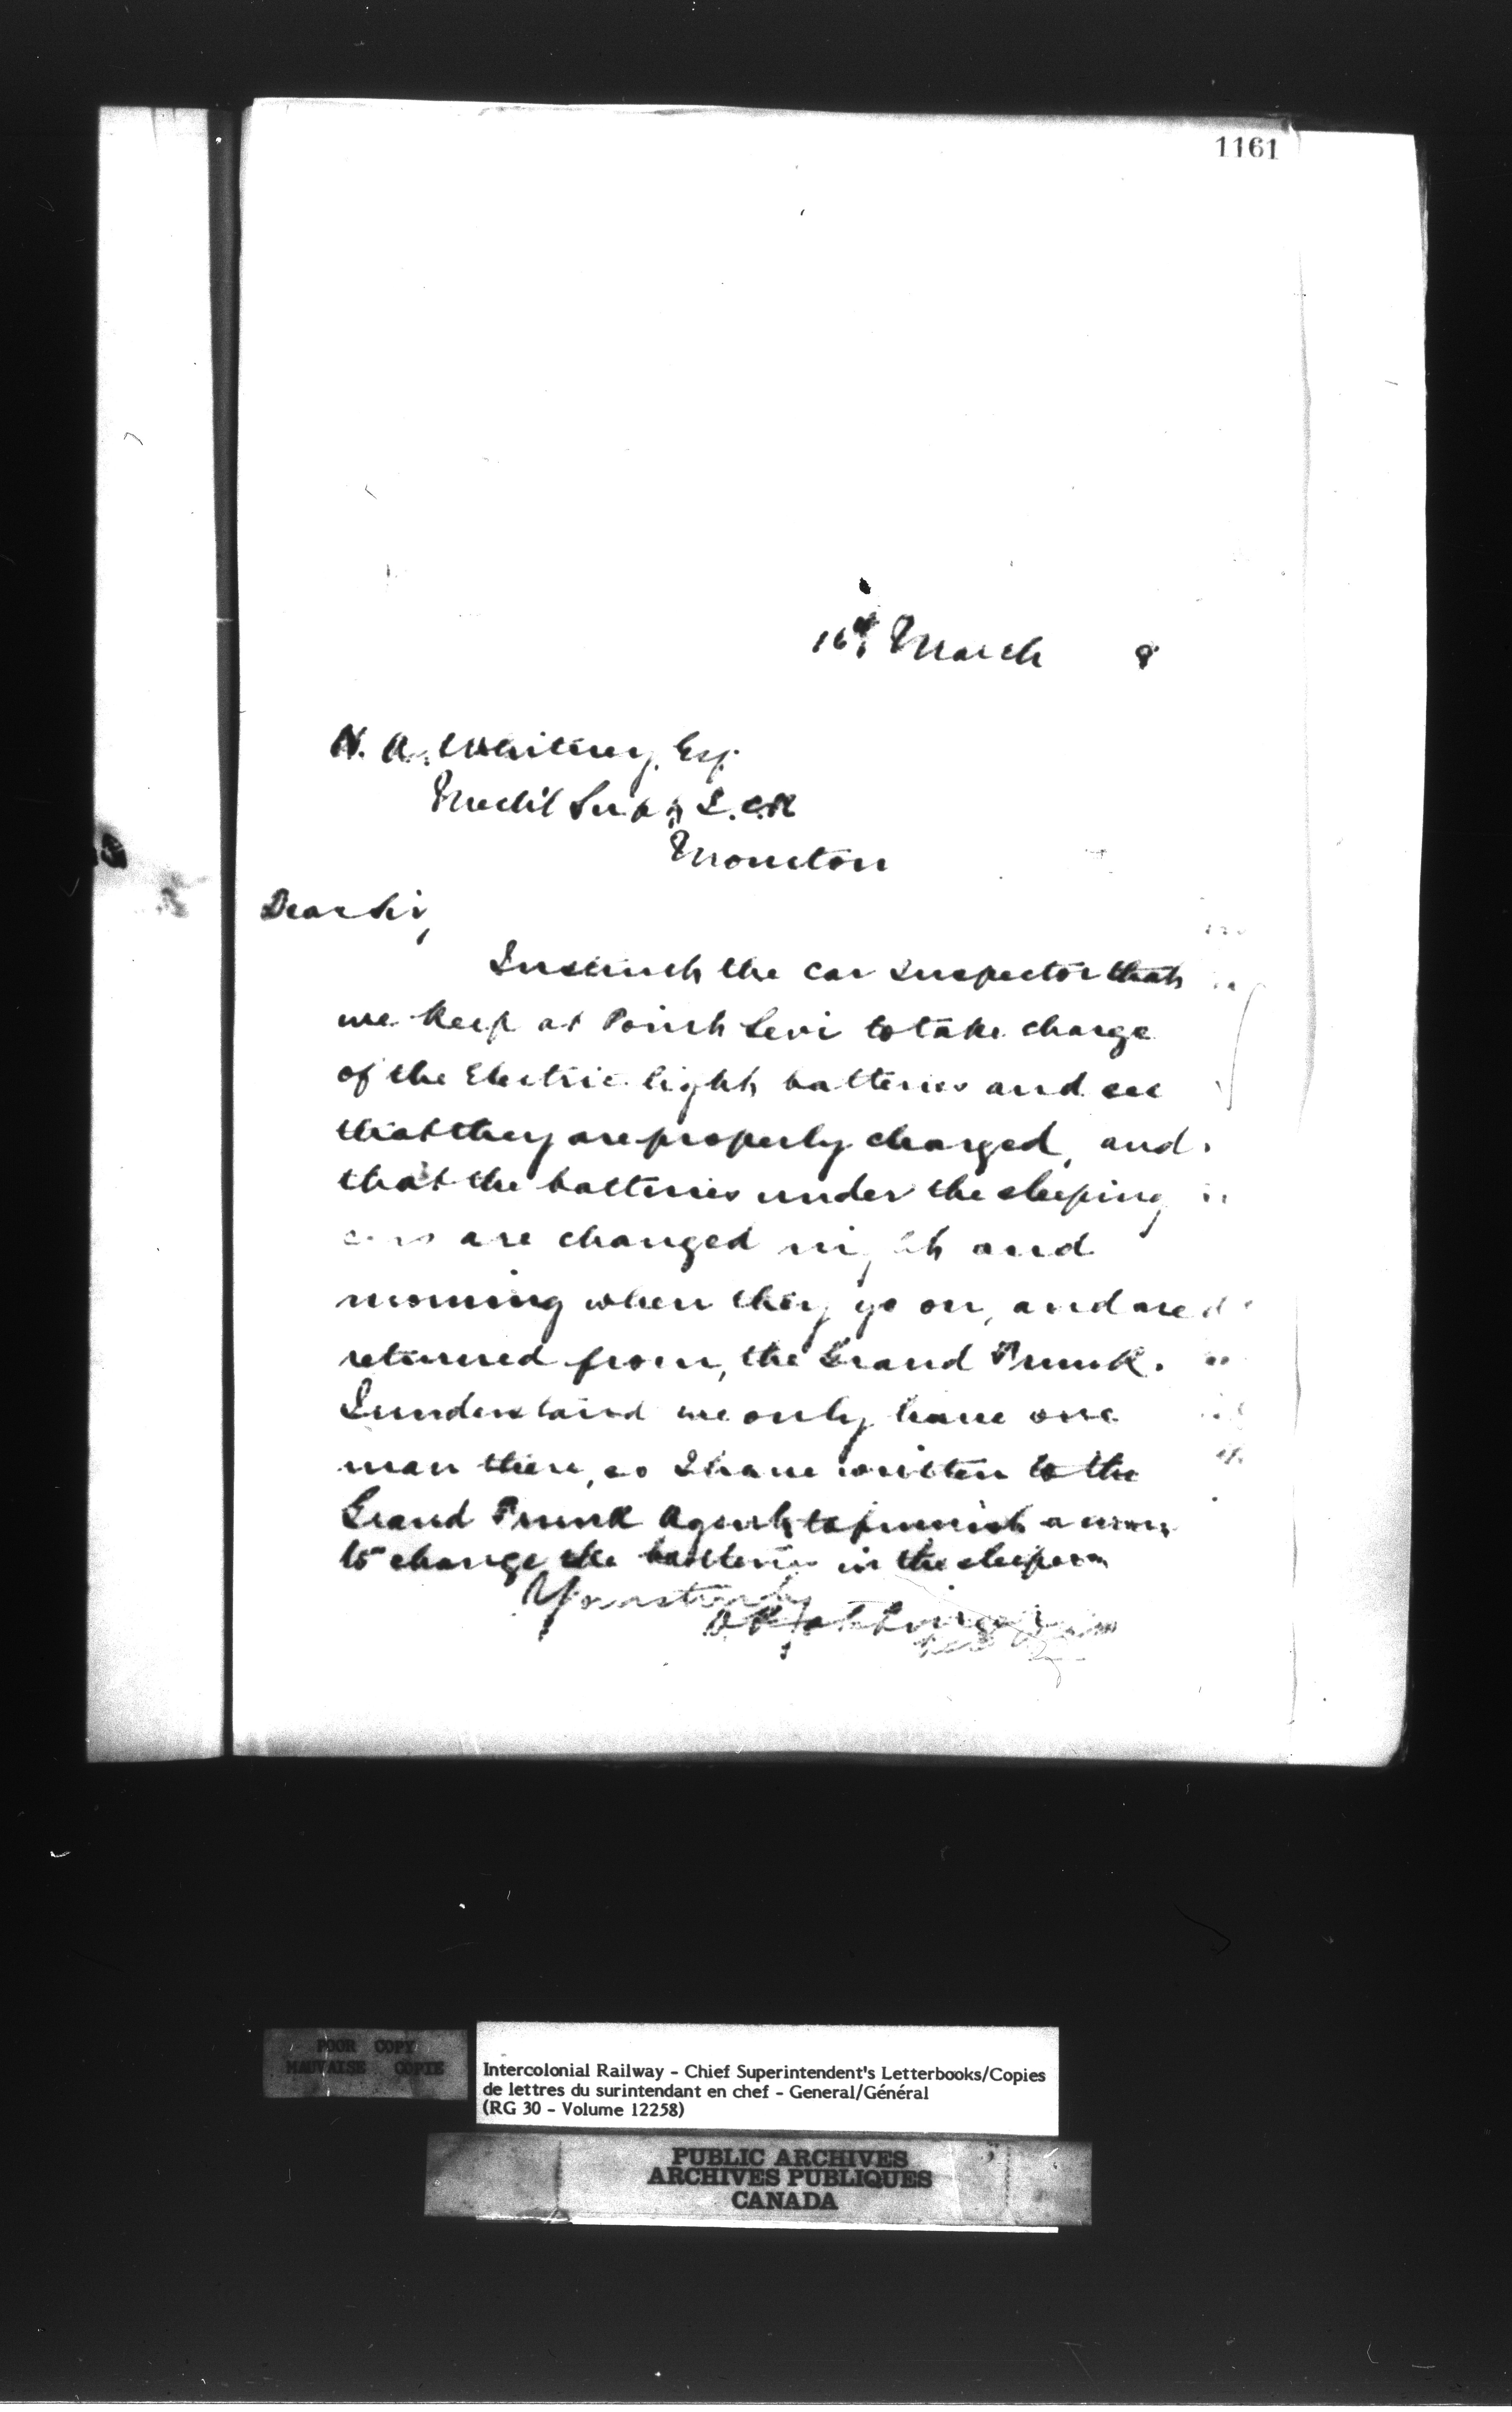 1161
16th March 8
H. A. Whitney, Esq.
Mech'l Supt. I.C.R
Moncton
Dear Sir,
Instruct the car Inspector that
we keep at Point Levi to take charge
of the Electric light batteries and see
that they are properly charged, and
that the batteries under the sleeping
cars are changed night and
morning when they go on, and are
returned from, the Grand Trunk.
I understand we only have one
man there, so I have written to the
Grand Trunk Agent to furnish a man
to change the batteries in the sleepers
Yours truly
POOR COPY
MAUVAISE COPIE
Intercolonial Railway - Chief Superintendent's Letterbooks/Copies
de lettres du surintendant en chef - General/Général
(RG 30 - Volume 12258)
PUBLIC ARCHIVES
ARCHIVES PUBLIQUES
CANADA